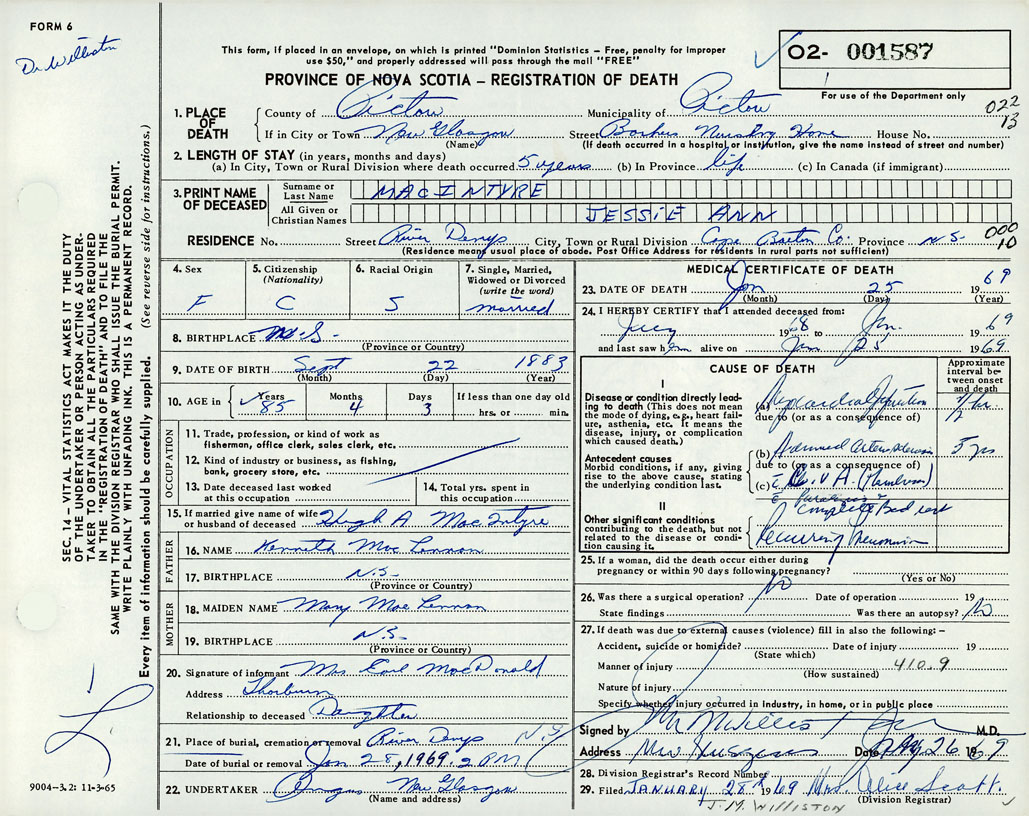 FORM 6
Dr Williston
This form, if placed in an envelope, on which is printed "Dominion Statistics – Free, penalty for improper
use $50," and properly addressed will pass through the mail "FREE"
O2- 001587
For use of the Department only
PROVINCE OF NOVA SCOTIA – REGISTRATION OF DEATH
022
13
1. PLACE OF DEATH
County of Pictou Municipality of Pictou
If in City or Town New Glasgow Street Nursing Home House No.
(Name) (If death occurred in a hospital or institution, give the name instead of street and number)
2. LENGTH OF STAY (in years, months and days)
(a) In City, Town or Rural Division where death occurred 5 years (b) In Province life (c) In Canada (if immigrant)
3. PRINT NAME OF DECEASED
Surname or Last Name MACINTYRE
All Given or Christian Names JESSIE ANN
RESIDENCE No. Street River Denys City, Town or Rural Division Cape Breton Co. Province N.S. 000
10
(Residence means usual place of abode. Post Office Address for residents in rural parts not sufficient)
4. Sex F
5. Citizenship (Nationality) C
6. Racial Origin S
7. Single, Married, Widowed or Divorced (write the word) married
8. BIRTHPLACE N.S.
(Province or Country)
9. DATE OF BIRTH Sept 22 1883
(Month) (Day) (Year)
10. AGE in Years 85 Months 4 Days 3 If less than one day old
hrs. or min.
OCCUPATION
11. Trade, profession, or kind of work as
fisherman, office clerk, sales clerk, etc.
12. Kind of industry or business, as fishing,
bank, grocery store, etc.
13. Date deceased last worked
at this occupation
14. Total yrs. spent in
this occupation
15. If married give name of wife
or husband of deceased Hugh A MacIntyre
FATHER
16. NAME Kenneth MacLennan
17. BIRTHPLACE N.S.
(Province or Country)
MOTHER
18. MAIDEN NAME Mary MacLennan
19. BIRTHPLACE N.S.
(Province or Country)
20. Signature of informant Mrs Earl MacDonald
Address Thorburn
Relationship to deceased Daughter
21. Place of burial, cremation or removal River Denys N.S.
Date of burial or removal Jan 28, 1969. 2 PM
22. UNDERTAKER New Glasgow
(Name and address)
MEDICAL CERTIFICATE OF DEATH
23. DATE OF DEATH Jan 25 1969
(Month) (Day) (Year)
24. I HEREBY CERTIFY that I attended deceased from:
July 1968 to Jan. 1969
and last saw her alive on Jan 25 1969.
CAUSE OF DEATH
Approximate interval between onset and death
I
Disease or condition directly leading to death (This does not mean the mode of dying, e.g., heart failure, asthenia, etc. It means the disease, injury, or complication which caused death.)
(a) Myocardial Infarction 1/2 hr
due to (or as a consequence of)
Antecedent causes
Morbid conditions, if any, giving rise to the above cause, stating the underlying condition last.
(b) Advanced Arteriosclerosis 5 yrs
due to (or as a consequence of)
(c) C.V.A.
paralysis
complete Bed rest
II
Other significant conditions
contributing to the death, but not related to the disease or condition causing it.
Recurring Pneumonia
25. If a woman, did the death occur either during
pregnancy or within 90 days following pregnancy?
(Yes or No)
26. Was there a surgical operation? No Date of operation 19
State findings Was there an autopsy? No
27. If death was due to external causes (violence) fill in also the following: –
Accident, suicide or homicide? Date of injury 19
(State which)
Manner of injury 410.9
(How sustained)
Nature of injury
Specify whether injury occurred in industry, in home, or in public place
Signed by M.D.
Address Date Jan 26 1969
28. Division Registrar's Record Number
29. Filed JANUARY 28th 1969 Mrs. Alice Scott.
J. M. WILLISTON (Division Registrar)
SEC. 14 – VITAL STATISTICS ACT MAKES IT THE DUTY
OF THE UNDERTAKER OR PERSON ACTING AS UNDER-
TAKER TO OBTAIN ALL THE PARTICULARS REQUIRED
IN THE "REGISTRATION OF DEATH" AND TO FILE THE
SAME WITH THE DIVISION REGISTRAR WHO SHALL ISSUE THE BURIAL PERMIT.
WRITE PLAINLY WITH UNFADING INK. THIS IS A PERMANENT RECORD.
Every item of information should be carefully supplied. (See reverse side for instructions.)
9004–3.2: 11-3-65